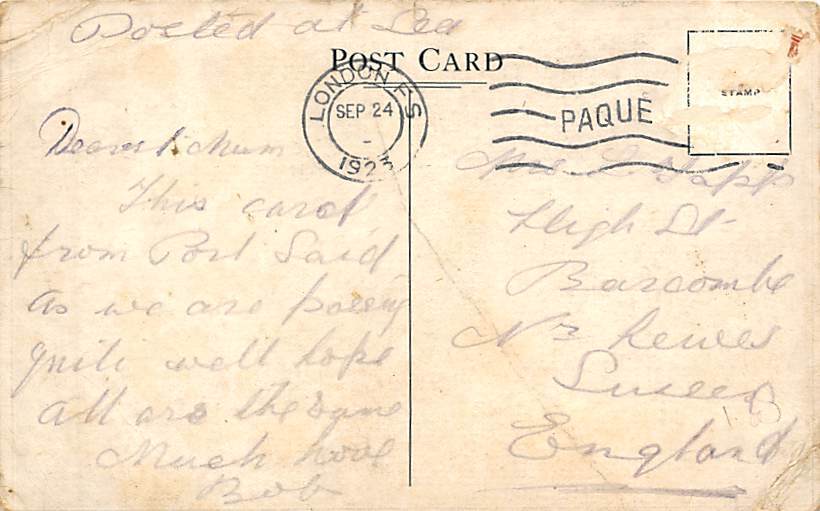 Posted at Sea
POST CARD
LONDON F.S
SEP 24
-
1923
PAQUE
STAMP
Dearest Mum
This card
from Port Said
as we are passing
quite well hope
all are the same
Much love
Bob
Mrs L Tapp
High St
Barcombe
Nr Lewes
Sussex
England